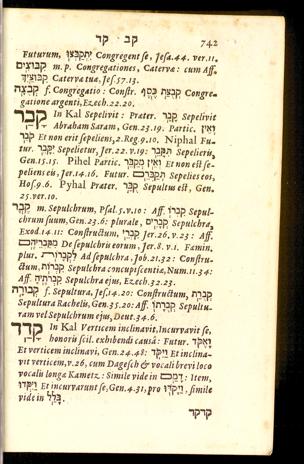 קב קד 742
Futurum, יִתְקַבְּצוּ Congregent se, Jesa.44. ver.11.
קִבּוּצִים m. p. Congregationes, Catervæ: cum Aff.
קִבּוּצַיִךְ Catervæ tuæ, Jes.57.13.
קְבֻצָה f. Congregatio: Constr. קְבֻצַת כֶּסֶף Congre-
gatione argenti, Ezech.22.20.
קָבַר In Kal Sepelivit: Præter. קָבַר Sepelivit
Abraham Saram, Gen.23.19. Partic. וְאֵין
קֹבֵר Et non erit sepeliens, 2.Reg.9.10. Niphal Fu-
tur. יִקָּבֵר Sepelietur, Jer.22. v.19: תִּקָּבֵר Sepelieris,
Gen.15.15. Pihel Partic. וְאֵין מְקַבֵּר Et non est se-
peliens eis, Jer.14.16. Futur. תְּקַבְּרֵם Sepelies eos,
Hos.9.6. Pyhal Præter. קֻבַּר Sepultus est, Gen.
25. ver.10.
קֶבֶר m. Sepulchrum, Psal.5. v.10: Aff. קִבְרוֹ Sepul-
chrum suum, Gen.23.6: plurale, קְבָרִים Sepulchra,
Exod.14.11: Constructum, קִבְרֵי Jer.26. v.23: Aff.
מִקִּבְרֵיהֶם De sepulchris eorum, Jer.8. v.1. Fœmin.
plur. לִקְבָרוֹת Ad sepulchra, Job.21.32: Constru-
ctum, קִבְרוֹת Sepulchra concupiscentiæ, Num.11.34:
Aff. קִבְרֹתֶיהָ Sepulchra ejus, Ezech.32.23.
קְבוּרָה f. Sepultura, Jes.14.20: Constructum, קְבֻרַת
Sepultura Rachelis, Gen.35.20: Aff. קְבֻרָתוֹ Sepultu-
ram vel Sepulchrum ejus, Deut.34.6.
קָדַד In Kal Verticem inclinavit, Incurvavit se,
honoris scil. exhibendi causâ: Futur. וָאֶקֹּד
Et verticem inclinavi, Gen.24.48: וַיִּקֹּד Et inclina-
vit verticem, v.26, cum Dagesch & vocali brevi loco
vocalis longæ Kametz: Simile vide in דָּמַם: Item,
וַיִּקְּדוּ Et incurvarunt se, Gen.43.1, pro וַיִּקֹּדוּ, simile
vide in בָּלַל
קדקד